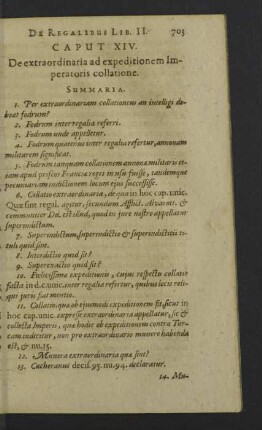 DE REGALIBUS LIB. II. 703
CAPUT XIV.
De extraordinaria ad expeditionem Im-
peratoris collatione.
SUMMARIA.
1. Per extraordinariam collationem an intelligi de-
beat fodrum?
2. Fodrum inter regalia referri.
3. Fodrum unde appelletur.
4. Fodrum quatenus inter regalia refertur, annonam
militarem significat.
5. Fodrum tanquam collationem annonæ militaris et-
iam apud priscos Francia reges in usu fuisse, tandemque
pecuniariam indictionem locum ejus successisse.
6. Collatio extraordinaria, de qua in hoc cap. unic.
Quæ sint regal. agitur, secundum Afflict. Alvarot. &
communiter Dd. est illud, quod in jure nostro appellant
superindictum.
7. Superindictum, superindictio & superindictitii ti-
tuli quid sint.
8. Interdictio quid sit?
9. Superexactio quid sit?
10. Felicissima expeditionis, cujus respectu collatio
facta in d.c. unic. inter regalia refertur, quibus locis reli-
quis juris fiat mentio.
11. Collatio, qua ob ejusmodi expeditionem fit, sicut in
hoc cap. unic. expresse extraordinaria appellatur, sic &
collecta Imperii, quæ hodie ob expeditionem contra Tur-
cam indicitur, non pro extraordinario munere habenda
est, & nu. 15.
12. Munera extraordinaria quæ sint?
13. Cacheranus decis. 93. nu. 94. declaratur.
14. Mu-